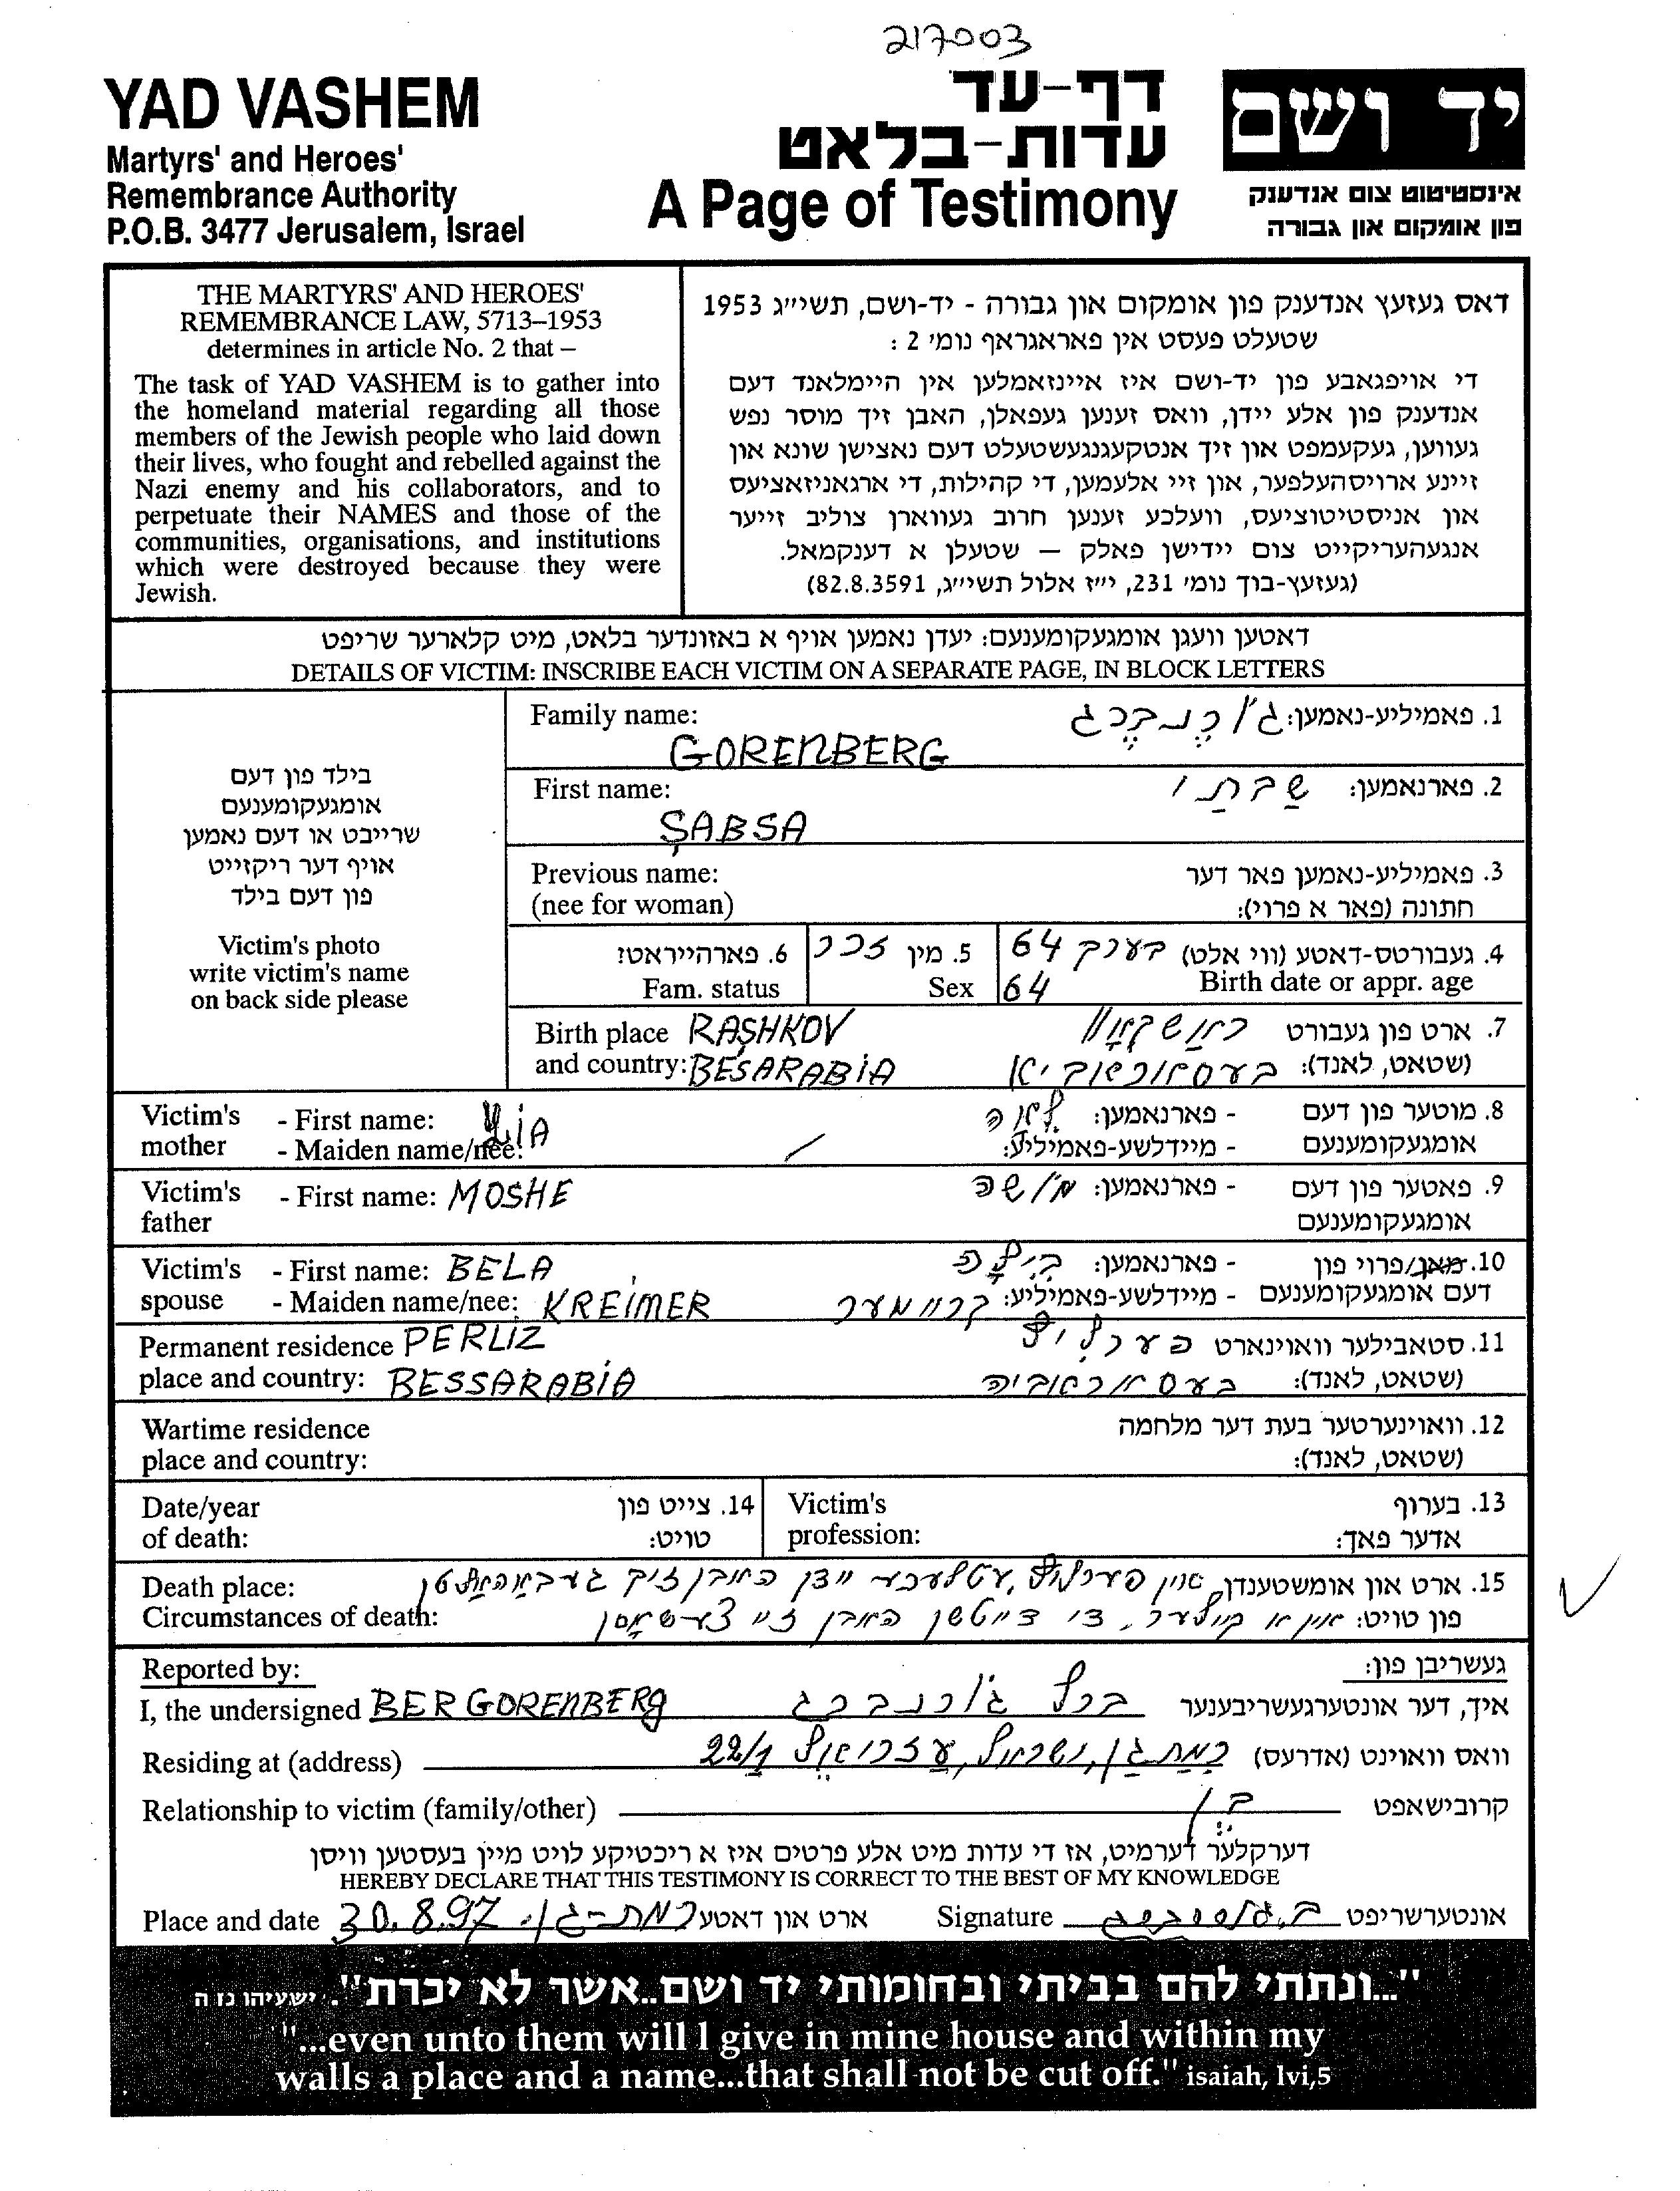 217003
YAD VASHEM
Martyrs' and Heroes'
Remembrance Authority
P.O.B. 3477 Jerusalem, Israel
דף-עד
עדות-בלאט
A Page of Testimony
יד ושם
אינסטיטוט צום אנדענק
פון אומקום און גבורה
THE MARTYRS' AND HEROES'
REMEMBRANCE LAW, 5713–1953
determines in article No. 2 that –
The task of YAD VASHEM is to gather into
the homeland material regarding all those
members of the Jewish people who laid down
their lives, who fought and rebelled against the
Nazi enemy and his collaborators, and to
perpetuate their NAMES and those of the
communities, organisations, and institutions
which were destroyed because they were
Jewish.
דאס געזעץ אנדענק פון אומקום און גבורה - יד-ושם, תשי״ג 1953
שטעלט פעסט אין פאראגראף נומ׳ 2 :
די אויפגאבע פון יד-ושם איז איינזאמלען אין היימלאנד דעם
אנדענק פון אלע יידן, וואס זענען געפאלן, האבן זיך מוסר נפש
געווען, געקעמפט און זיך אנטקעגנגעשטעלט דעם נאצישן שונא און
זיינע ארויסהעלפער, און זיי אלעמען, די קהילות, די ארגאניזאציעס
און אניסטיטוציעס, וועלכע זענען חרוב געווארן צוליב זייער
אנגעהעריקייט צום יידישן פאלק — שטעלן א דענקמאל.
(געזעץ-בוך נומ׳ 231, י״ז אלול תשי״ג, 82.8.3591)
דאטען וועגן אומגעקומענעם: יעדן נאמען אויף א באזונדער בלאט, מיט קלארער שריפט
DETAILS OF VICTIM: INSCRIBE EACH VICTIM ON A SEPARATE PAGE, IN BLOCK LETTERS
בילד פון דעם
אומגעקומענעם
שרייבט או דעם נאמען
אויף דער ריקזייט
פון דעם בילד
Victim's photo
write victim's name
on back side please
Family name: 1. פאמיליע-נאמען: גורנברג
GORENBERG
First name: 2. פארנאמען: שבתי
ŞABSA
Previous name: 3. פאמיליע-נאמען פאר דער
(nee for woman) חתונה (פאר א פרוי):
6. פארהייראט? 5. מין זכר 4. געבורטס-דאטע (ווי אלט) בערך 64
Fam. status Sex 64 Birth date or appr. age
Birth place RAŞHKOV 7. ארט פון געבורט ראשקאוו
and country: BESARABIA (שטאט, לאנד): בעסאראביא
Victim's - First name: LIA 8. מוטער פון דעם - פארנאמען: לאה
mother - Maiden name/nee: אומגעקומענעם - מיידלשע-פאמיליע:
Victim's - First name: MOSHE 9. פאטער פון דעם - פארנאמען: מושה
father אומגעקומענעם
Victim's - First name: BELA 10. מאן/פרוי פון - פארנאמען: בילה
spouse - Maiden name/nee: KREIMER דעם אומגעקומענעם - מיידלשע-פאמיליע: קריימער
Permanent residence PERLIZ 11. סטאבילער וואוינארט פערליץ
place and country: BESSARABIA (שטאט, לאנד): בעסאראביה
Wartime residence 12. וואוינערטער בעת דער מלחמה
place and country: (שטאט, לאנד):
Date/year 14. צייט פון Victim's 13. בערוף
of death: טויט: profession: אדער פאך:
Death place: 15. ארט און אומשטענדן אין פערליץ, עטלעכע יידן האבן זיך געבאהאלטן
Circumstances of death: פון טויט: אין א קעלער, די דייטשן האבן זיי צעשאסן
Reported by: געשריבן פון:
I, the undersigned BER GORENBERG איך, דער אונטערגעשריבענער ברל גורנברג
Residing at (address) וואס וואוינט (אדרעס) רמת גן, ישראל, עזריאל 22/1
Relationship to victim (family/other) קרובישאפט בן
דערקלער דערמיט, אז די עדות מיט אלע פרטים איז א ריכטיקע לויט מיין בעסטען וויסן
HEREBY DECLARE THAT THIS TESTIMONY IS CORRECT TO THE BEST OF MY KNOWLEDGE
Place and date 30.8.97 רמת-גן ארט און דאטע Signature אונטערשריפט
"...ונתתי להם בביתי ובחומותי יד ושם...אשר לא יכרת". ישעיהו נו ה
"...even unto them will I give in mine house and within my
walls a place and a name...that shall not be cut off." isaiah, lvi,5